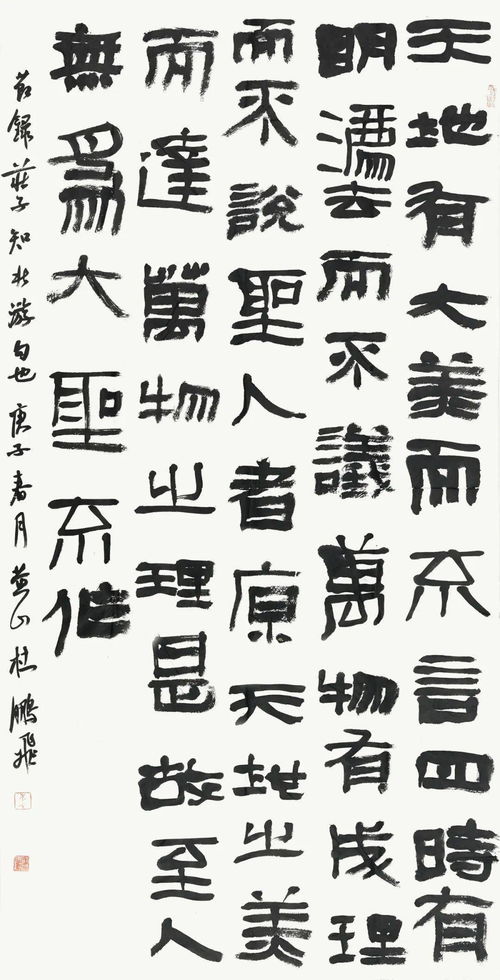 天地有大美而不言四時有
明灋而不議萬物有成理
而不說聖人者原天地之美
而達萬物之理是故至人
無爲大聖不作
節錄莊子知北游句也庚子春月黄山杜鵬飛